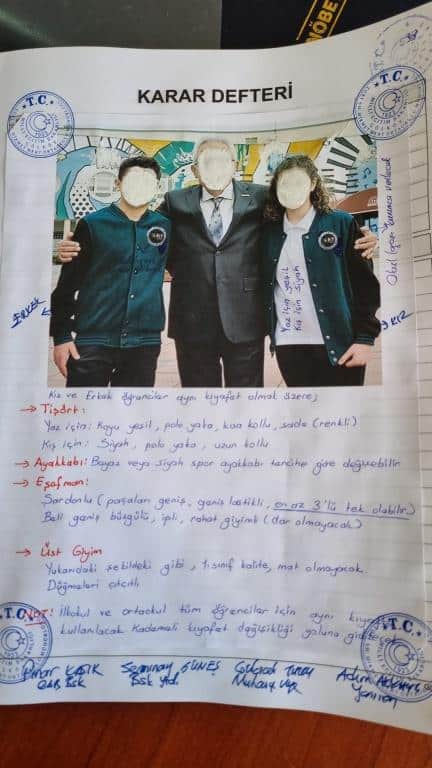 NÖBE
T.C.
T.C.
KARAR DEFTERİ
ERKEK
KIZ
Yaz için yeşil
Kış için siyah
Kız ve Erkek öğrenciler aynı kıyafet olmak üzere;
→ Tişört:
Yaz için: Koyu yeşil, polo yaka, kısa kollu, sade (renkli)
Kış için: Siyah, polo yaka, uzun kollu
→ Ayakkabı: Beyaz veya siyah spor ayakkabı tercihe göre değişebilir
→ Eşofman:
Şardonlu (paçaları geniş, geniş lastikli, en az 3'lü tek olabilir)
Beli geniş büzgülü, ipli, rahat giyimli (dar olmayacak)
→ Üst Giyim
Yukarıdaki şekildeki gibi, 1. sınıf kalite, mat olmayacak
Düğmeleri çıtçıtlı
NOT: İlkokul ve ortaokul tüm öğrenciler için aynı
kullanılacak Kademeli kıyafet değişikliği yoluna
T.C.
T.C.
Pınar
GÜNEŞ
Bşk
Bşk Yrd.